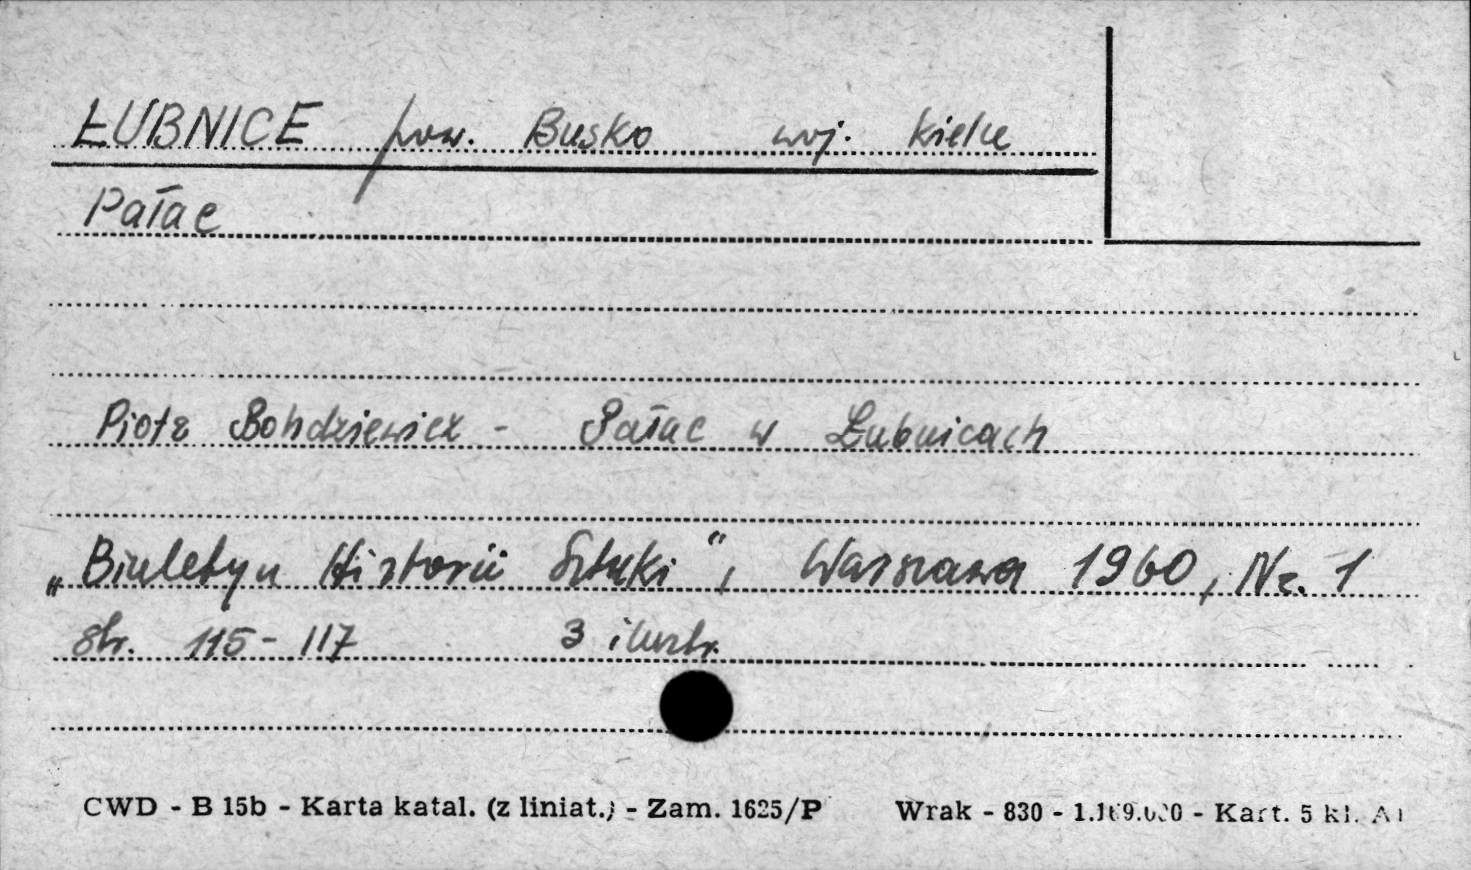 ŁUBNICE pow. Busko woj. Kielce
Pałac
Piotr Bohdziewicz - Pałac w Łubnicach
„Biuletyn Historii Sztuki", Warszawa 1960, Nr. 1
str. 115-117 3 ilustr.
CWD - B 15b - Karta katal. (z liniat.) - Zam. 1625/P Wrak - 830 - 1.169.000 - Kart. 5 kl. A1